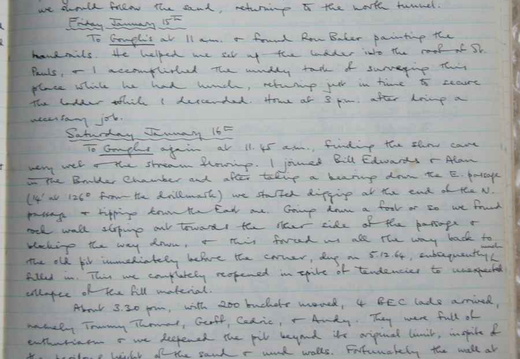 we should follow the sand, returning to the north tunnel.
Friday January 15th
To Goughs at 11 am. & found Ron Baker painting the
handrails. He helped me set up the ladder into the roof of St.
Pauls, & I accomplished the muddy task of surveying this
place while he had lunch, returning just in time to secure
the ladder while I descended. Home at 3 pm. after doing a
necessary job.
Saturday January 16th
To Goughs again at 11.45 am., finding the show cave
very wet & the stream flowing. I joined Bill Edwards & Alan
in the Boulder Chamber and after taking a bearing down the E. passage
(14' at 126° from the drillmark) we started digging at the end of the N.
passage & tipping down the East one. Going down a foot or so we found
rock wall sloping out towards the other side of the passage &
blocking the way down, & this forced us all the way back to
the old pit immediately before the corner, dug on 5.12.64, subsequently
filled in. This we completely reopened in spite of tendencies to unexpected
collapse of the fill material.
About 3.30 pm, with 200 buckets moved, 4 BEC lads arrived,
namely Tommy Thomas, Geoff, Cedric, & Andy. They were full of
enthusiasm & we deepened the pit beyond its original limit, inspite of
the height of the sand & mud walls. Fortunately the wall at